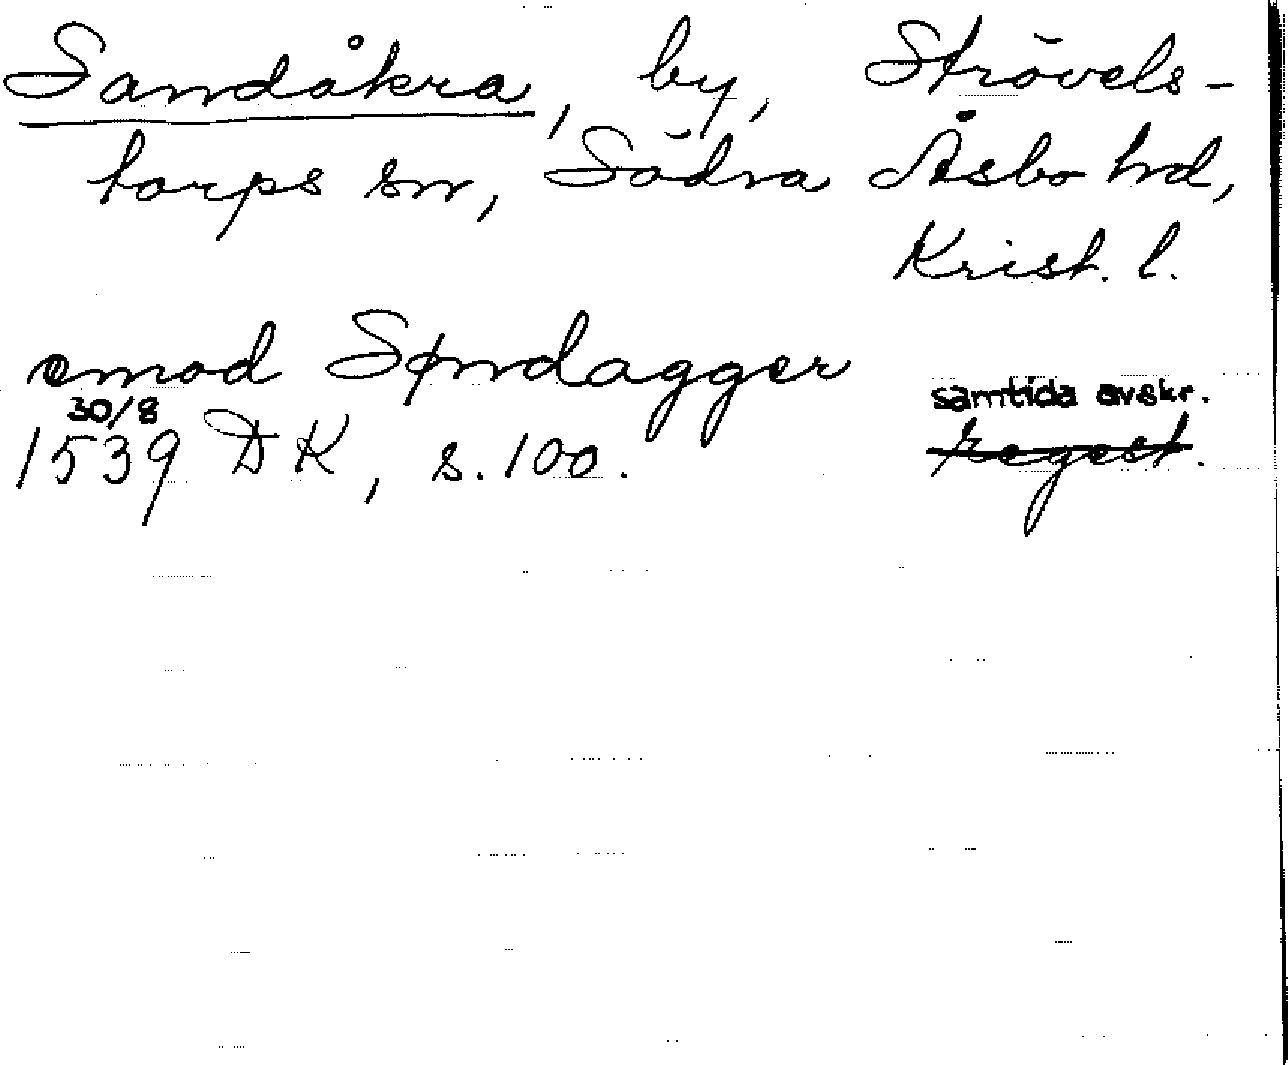 Sandåkra, by, Strövels-
torps sn, Södra Åsbo hd,
Krist. l.
emod Søndagger
samtida avskr.
30/8
1539 DK, s. 100. regest.